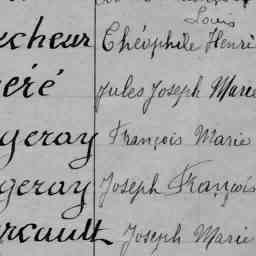 Louis
cheur Théophile Henri
éré Jules Joseph Marie
geray François Marie
geray Joseph François
rcault Joseph Marie